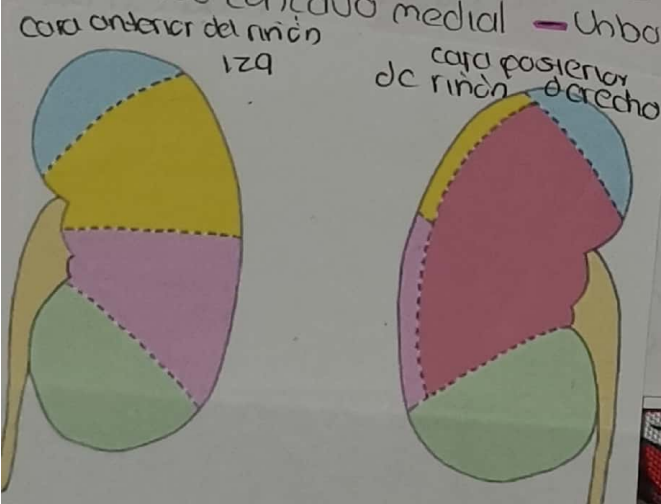 medial - Unbo
cara anterior del riñón
izq
cara posterior
de riñòn derecho